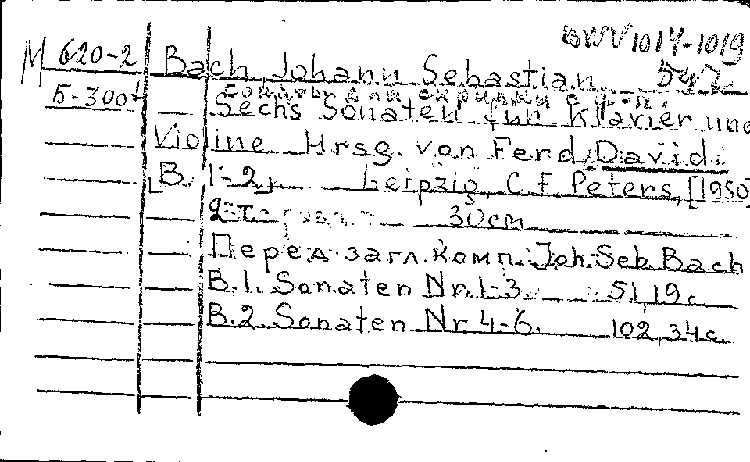 BWV 1014-1019
М 620-2 Bach, Johann Sebastian
Б-300
Sechs Sonaten für Klavier und
Violine Hrsg. von Ferd. David.
B. 1-2 Leipzig, C. F. Peters, [1950]
2 т. 30 см
Перед загл. комп.: Joh. Seb. Bach
B. 1. Sonaten Nr. 1-3. 51, 19 с.
B. 2. Sonaten Nr 4-6. 102, 34 с.